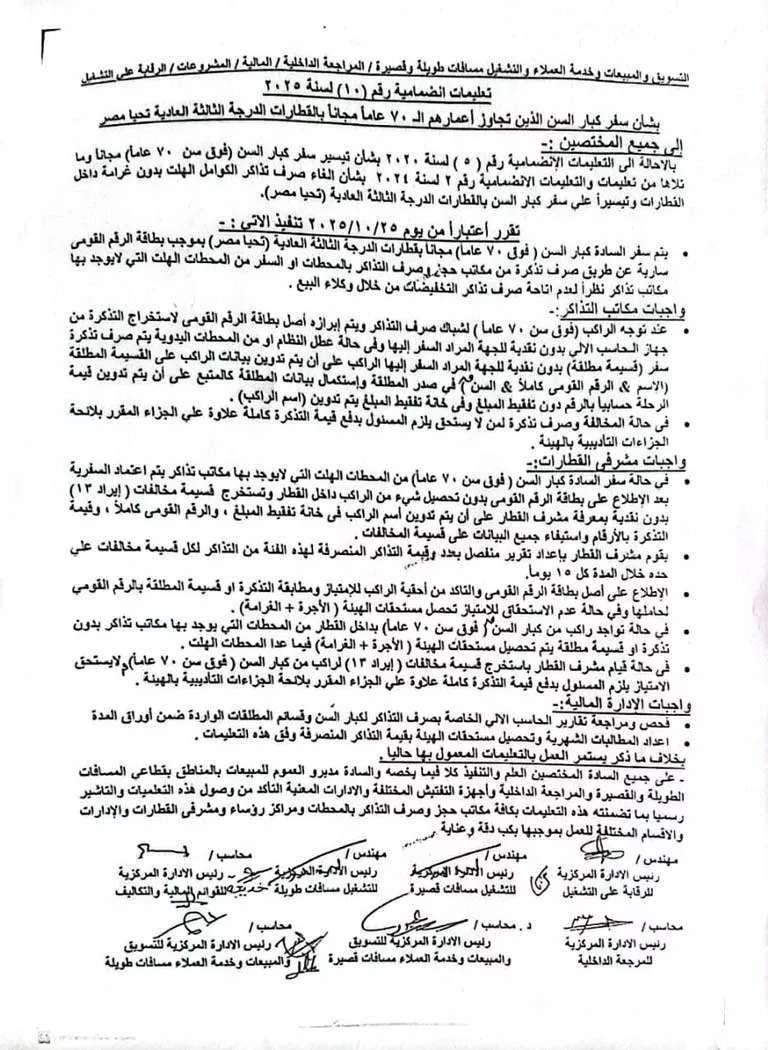 التسويق والمبيعات وخدمة العملاء والتشغيل مسافات طويلة وقصيرة / المراجعة الداخلية / المالية / المشروعات / الرقابة على التشغيل
تعليمات انضمامية رقم (١٠) لسنة ٢٠٢٥
بشأن سفر كبار السن الذين تجاوز أعمارهم الـ ٧٠ عاماً مجاناً بالقطارات الدرجة الثالثة العادية تحيا مصر
إلى جميع المختصين :-
بالاحالة الى التعليمات الإنضمامية رقم ( ٥ ) لسنة ٢٠٢٠ بشأن تيسير سفر كبار السن (فوق سن ٧٠ عاماً) مجاناً وما
تلاها من تعليمات والتعليمات الانضمامية رقم ٢ لسنة ٢٠٢٤ بشأن الغاء صرف تذاكر الكوامل الهلت بدون غرامة داخل
القطارات وتيسيراً علي سفر كبار السن بالقطارات الدرجة الثالثة العادية (تحيا مصر).
تقرر أعتباراً من يوم ٢٠٢٥/١٠/٢٥ تنفيذ الاتي :-
• يتم سفر السادة كبار السن ( فوق ٧٠ عاما) مجاناً بقطارات الدرجة الثالثة العادية (تحيا مصر) بموجب بطاقة الرقم القومى
سارية عن طريق صرف تذكرة من مكاتب حجز وصرف التذاكر بالمحطات او السفر من المحطات الهلت التي لايوجد بها
مكاتب تذاكر نظراً لعدم اتاحة صرف تذاكر التخفيضات من خلال وكلاء البيع .
واجبات مكاتب التذاكر:-
• عند توجه الراكب (فوق سن ٧٠ عاماً ) لشباك صرف التذاكر ويتم إبرازه أصل بطاقة الرقم القومى لاستخراج التذكرة من
جهاز الحاسب الالي بدون نقدية للجهة المراد السفر إليها وفى حالة عطل النظام او من المحطات اليدوية يتم صرف تذكرة
سفر (قسيمة مطلقة) بدون نقدية للجهة المراد السفر إليها الراكب على أن يتم تدوين بيانات الراكب على القسيمة المطلقة
(الاسم & الرقم القومى كاملاً & السن) فى صدر المطلقة وإستكمال بيانات المطلقة كالمتبع على أن يتم تدوين قيمة
الرحلة حسابياً بالرقم دون تفقيط المبلغ وفى خانة تفقيط المبلغ يتم تدوين (اسم الراكب) .
• فى حالة المخالفة وصرف تذكرة لمن لا يستحق يلزم المسئول بدفع قيمة التذكرة كاملة علاوة علي الجزاء المقرر بلائحة
الجزاءات التأديبية بالهيئة .
واجبات مشرفى القطارات:-
• فى حالة سفر السادة كبار السن ( فوق سن ٧٠ عاما) من المحطات الهلت التي لايوجد بها مكاتب تذاكر يتم اعتماد السفرية
بعد الإطلاع على بطاقة الرقم القومى بدون تحصيل شيء من الراكب داخل القطار وتستخرج قسيمة مخالفات ( إيراد ١٣)
بدون نقدية بمعرفة مشرف القطار على أن يتم تدوين أسم الراكب فى خانة تفقيط المبلغ ، والرقم القومى كاملاً ، وقيمة
التذكرة بالأرقام واستيفاء جميع البيانات على قسيمة المخالفات .
• يقوم مشرف القطار بإعداد تقرير منفصل بعدد وقيمة التذاكر المنصرفة لهذه الفئة من التذاكر لكل قسيمة مخالفات علي
حده خلال المدة كل ١٥ يوماً.
• الإطلاع على أصل بطاقة الرقم القومى والتاكد من أحقية الراكب للإمتياز ومطابقة التذكرة او قسيمة المطلقة بالرقم القومي
لحاملها وفي حالة عدم الاستحقاق للإمتياز تحصل مستحقات الهيئة ( الأجرة + الغرامة) .
• في حالة تواجد راكب من كبار السن ( فوق سن ٧٠ عاما) بداخل القطار من المحطات التي يوجد بها مكاتب تذاكر بدون
تذكرة او قسيمة مطلقة يتم تحصيل مستحقات الهيئة ( الأجرة + الغرامة) فيما عدا المحطات الهلت .
• في حالة قيام مشرف القطار باستخرج قسيمة مخالفات ( إيراد ١٣) لراكب من كبار السن ( فوق سن ٧٠ عاما) لايستحق
الامتياز يلزم المسئول بدفع قيمة التذكرة كاملة علاوة علي الجزاء المقرر بلائحة الجزاءات التأديبية بالهيئة .
واجبات الإدارة المالية:-
• فحص ومراجعة تقارير الحاسب الالي الخاصة بصرف التذاكر لكبار السن وقسائم المطلقات الواردة ضمن أوراق المدة
• اعداد المطالبات الشهرية وتحصيل مستحقات الهيئة بقيمة التذاكر المنصرفة وفق هذه التعليمات .
بخلاف ما ذكر يستمر العمل بالتعليمات المعمول بها حاليا .
- على جميع السادة المختصين العلم والتنفيذ كلا فيما يخصه والسادة مديرو العموم للمبيعات بالمناطق بقطاعي المسافات
الطويلة والقصيرة والمراجعة الداخلية وأجهزة التفتيش المختلفة والادارات المعنية التأكد من وصول هذه التعلميات والتاشير
رسميا بما تضمنته هذه التعليمات بكافة مكاتب حجز وصرف التذاكر بالمحطات ومراكز رؤساء ومشرفى القطارات والإدارات
والاقسام المختلفة للعمل بموجبها بكب دقة وعناية
مهندس / مهندس / مهندس / محاسب /
رئيس الادارة المركزية رئيس الإدارة المركزية رئيس الإدارة المركزية رئيس الادارة المركزية
للرقابة على التشغيل للتشغيل مسافات قصيرة للتشغيل مسافات طويلة للقوائم المالية والتكاليف
محاسب / د. محاسب / محاسب /
رئيس الادارة المركزية رئيس الادارة المركزية للتسويق رئيس الادارة المركزية للتسويق
للمرجعة الداخلية والمبيعات وخدمة العملاء مسافات قصيرة والمبيعات وخدمة العملاء مسافات طويلة